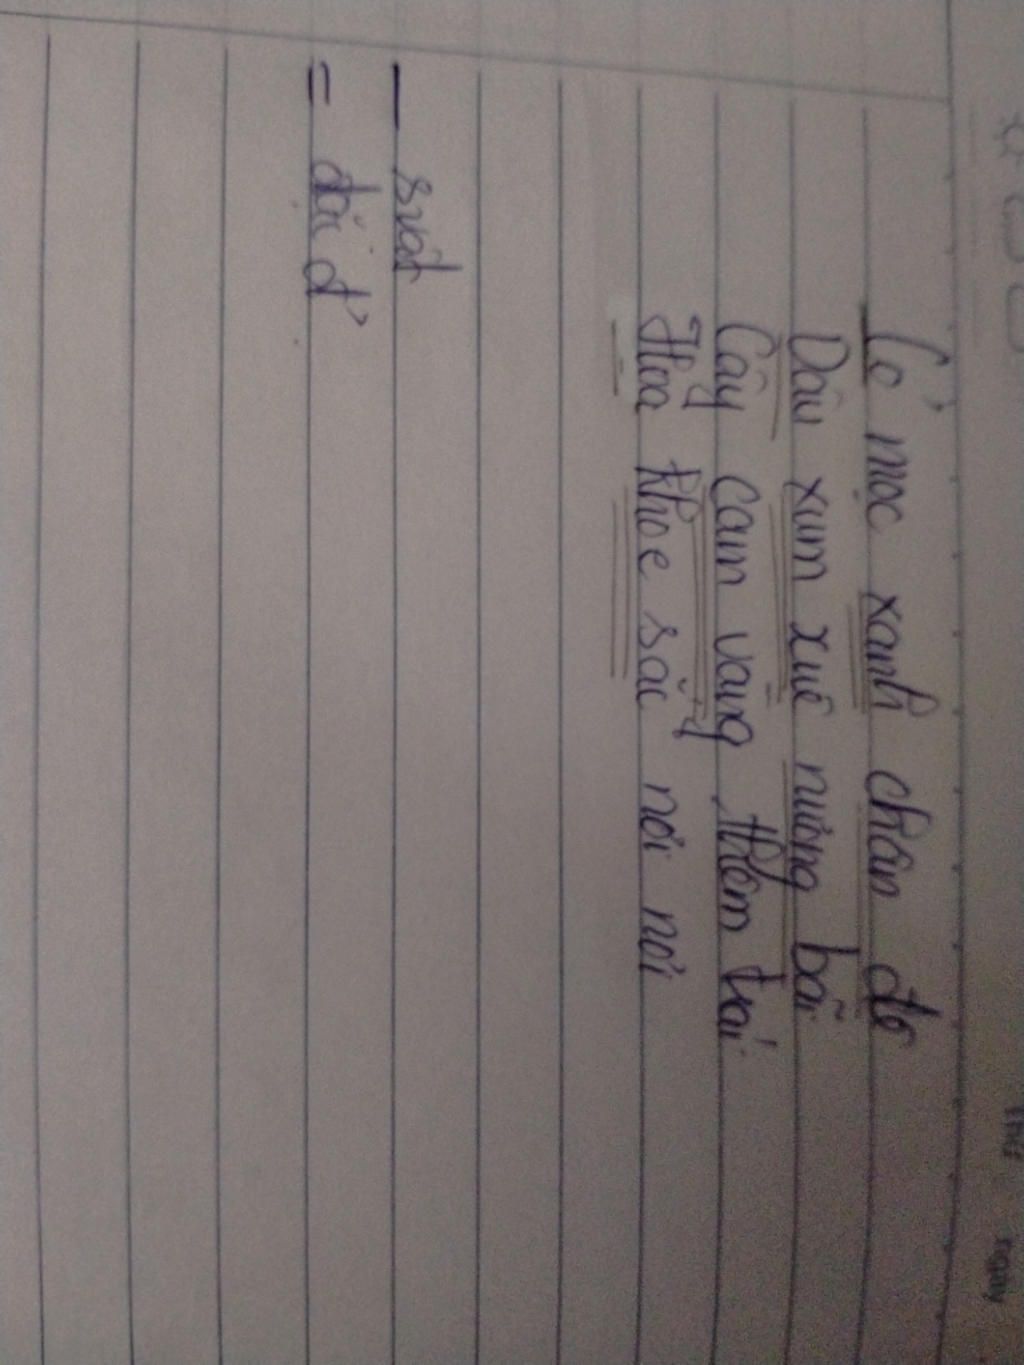 Cỏ mọc xanh chân đê
Dâu xum xuê nương bãi
Cây cam vàng thêm trái
Hoa khoe sắc nơi nơi
— svật
= đặc đ'